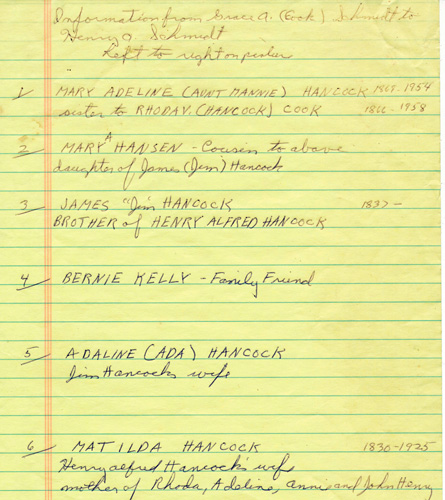 Information from Grace A. (Cook) Schmidt to
Henry A. Schmidt
Left to right on picture
1 MARY ADELINE (AUNT MANNIE) HANCOCK 1865-1954
sister to RHODA V. (HANCOCK) COOK 1866-1958
2 MARY A HANSEN - Cousin to above
daughter of James (Jim) Hancock
3 JAMES "Jim HANCOCK 1837-
BROTHER of HENRY ALFRED HANCOCK
4 BERNIE KELLY - Family Friend
5 ADALINE (ADA) HANCOCK
Jim Hancock's wife
6 MATILDA HANCOCK 1830-1925
Henry Alfred Hancock's wife
mother of Rhoda, Adeline, Anni and John Henry